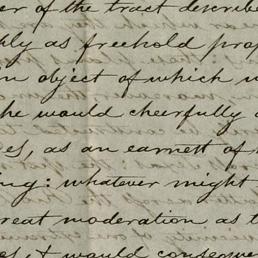 er of the tract describe
hly as freehold prop
n object of which w
he would cheerfully
es, as an earnest of
ng: whatever might
reat moderation as t
es, & would conseque